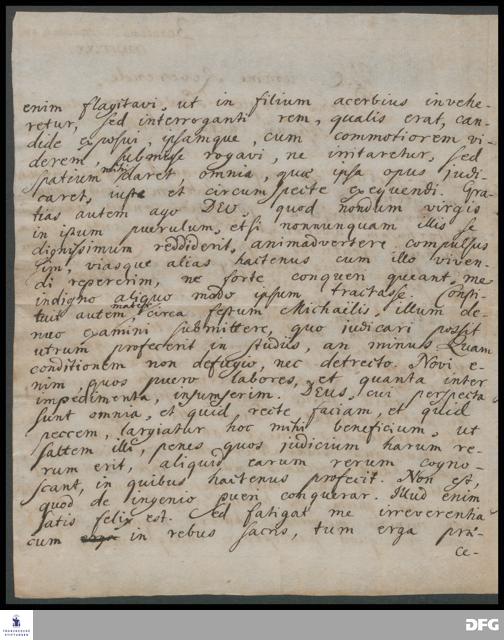 enim flagitavi, ut in filium acerbius invehe-
retur, sed interroganti rem, qualis erat, can-
dide exposui, ipsamque, cum commotiorem vi-
derem, submisse rogavi, ne irritaretur, sed
spatium mihi daret, omnia, quæ ipsa opus judi-
caret, juste et circumspecte exequendi. Gra-
tias autem ago DEO, quod nondum virgis
in ipsum puerulum, etsi nonnunquam illis se
dignissimum reddiderit, animadvertere compulsus
sim, viasque alias hactenus cum illo viven-
di repererim, ne forte conqueri queant, me
indigno aliquo modo ipsum tractasse. Consti-
tuit autem mater, circa festum Michaelis, illum de-
nuo examini submittere, quo judicari possit
utrum profecerit in studiis, an minus. Quam
conditionem non defugio, nec detrecto. Novi e-
nim, quos puero labores, et quanta inter
impedimenta, insumserim. DEUS, cui perspecta
sunt omnia, et quid recte faciam, et quid
peccem, largiatur hoc mihi beneficium, ut
saltem illi, penes quos judicium harum re-
rum erit, aliquid earum rerum cogno-
scant, in quibus hactenus profecit. Non est,
quod de ingenio pueri conquerar. Illud enim
satis felix est. Sed fatigat me irreverentia
cum in rebus sacris, tum erga præ-
ce-
FRANCKESCHE
STIFTUNGEN
DFG